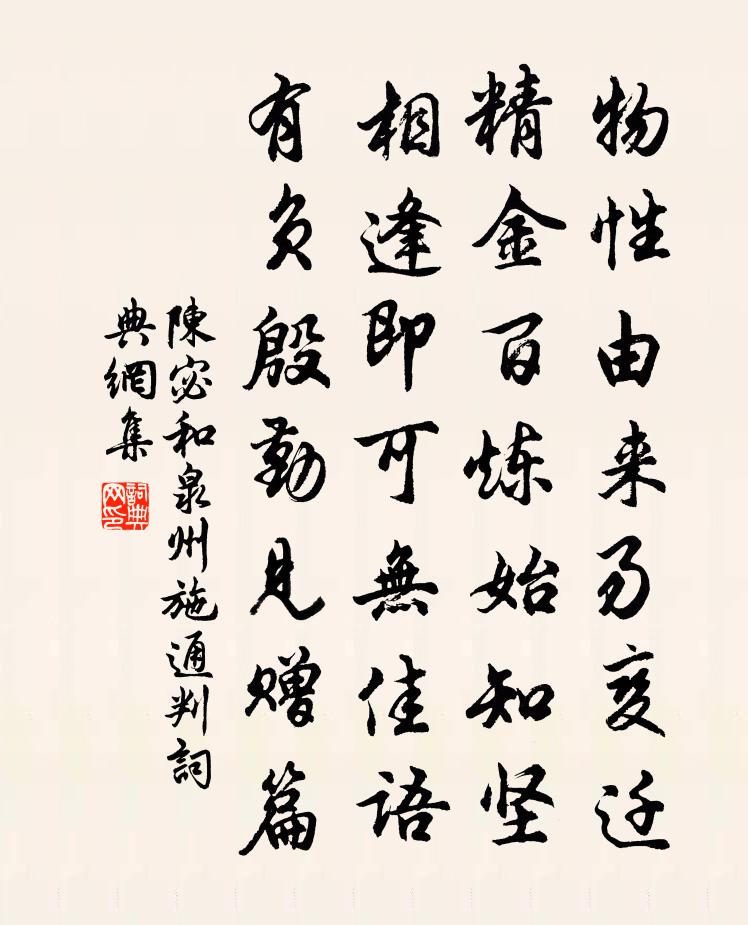 物性由来易变迁
精金百炼始知坚
相逢即可無佳語
有负殷勤见赠篇
陳宓和泉州施通判詞
典網集
詞典网印